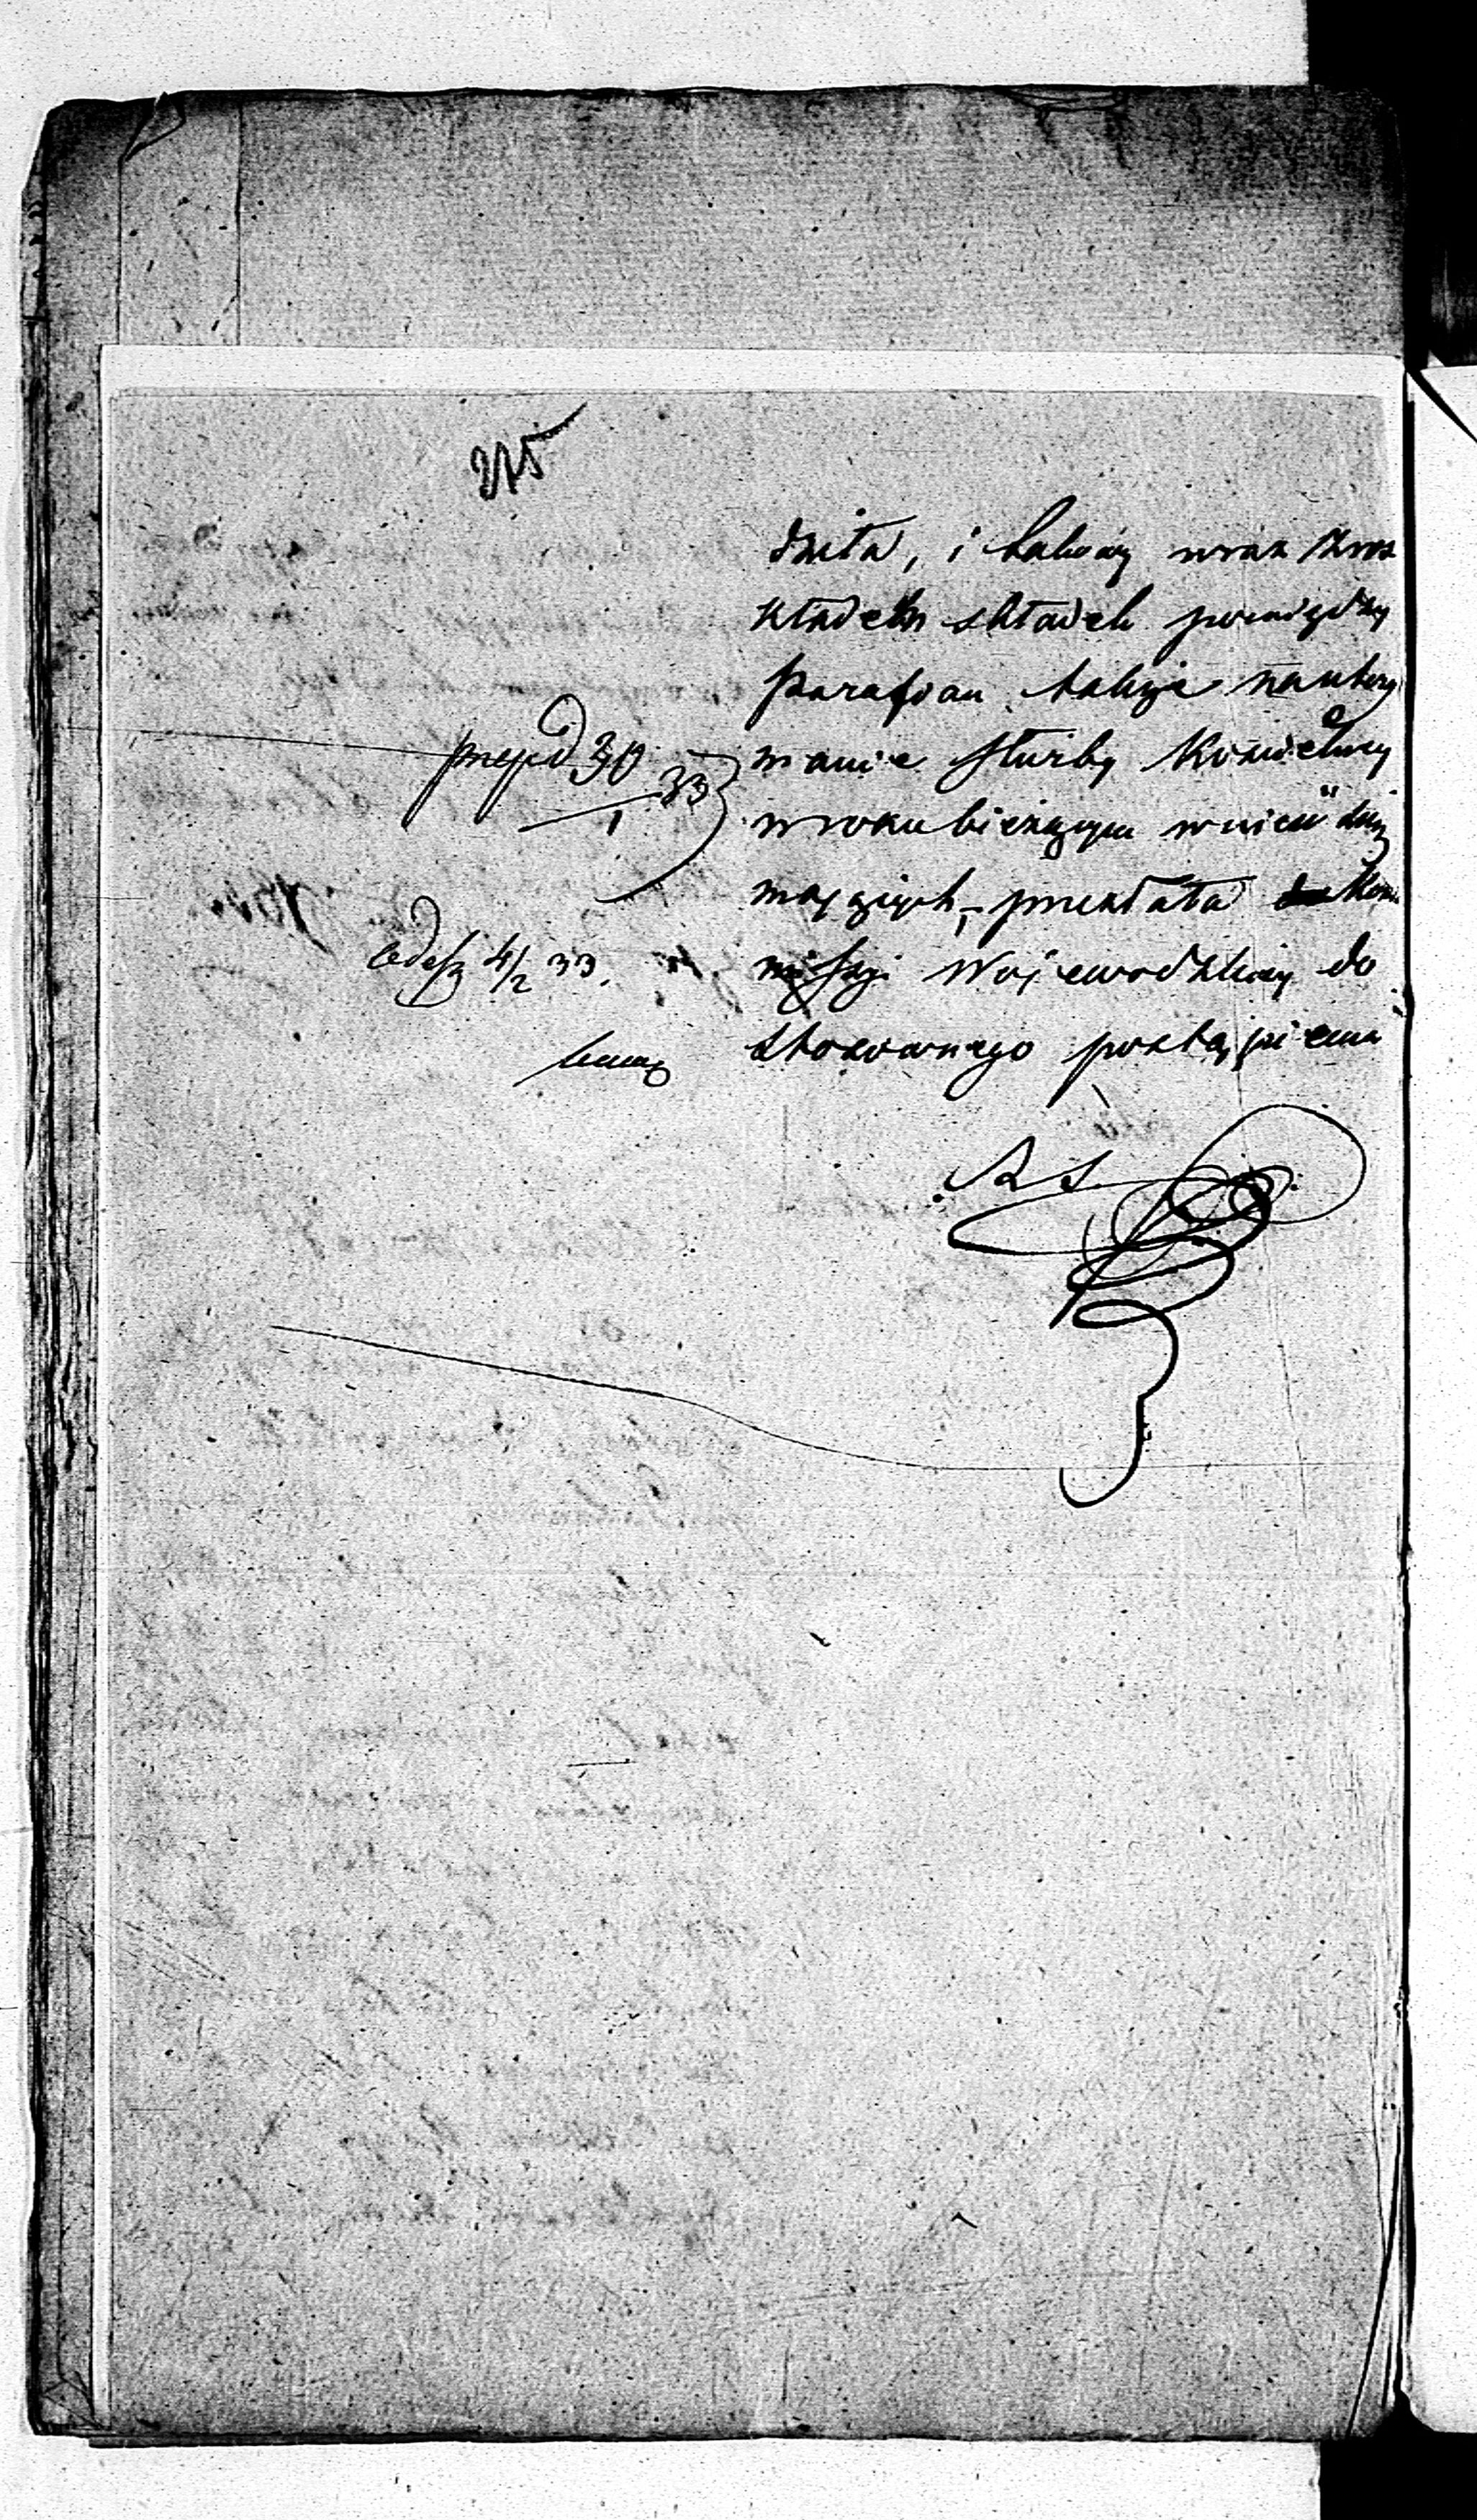 215
dziła, i takowy wraz z roz
kładem składek pomiędzy
parafian, także na utrzy
manie służby kościelney
w roku bieżącym wnieść
mających, – przesłała Kom
missyi Woiewodzkiey do
stosownego postąpienia
przep d 30/1 33
od exp 4/2 33.